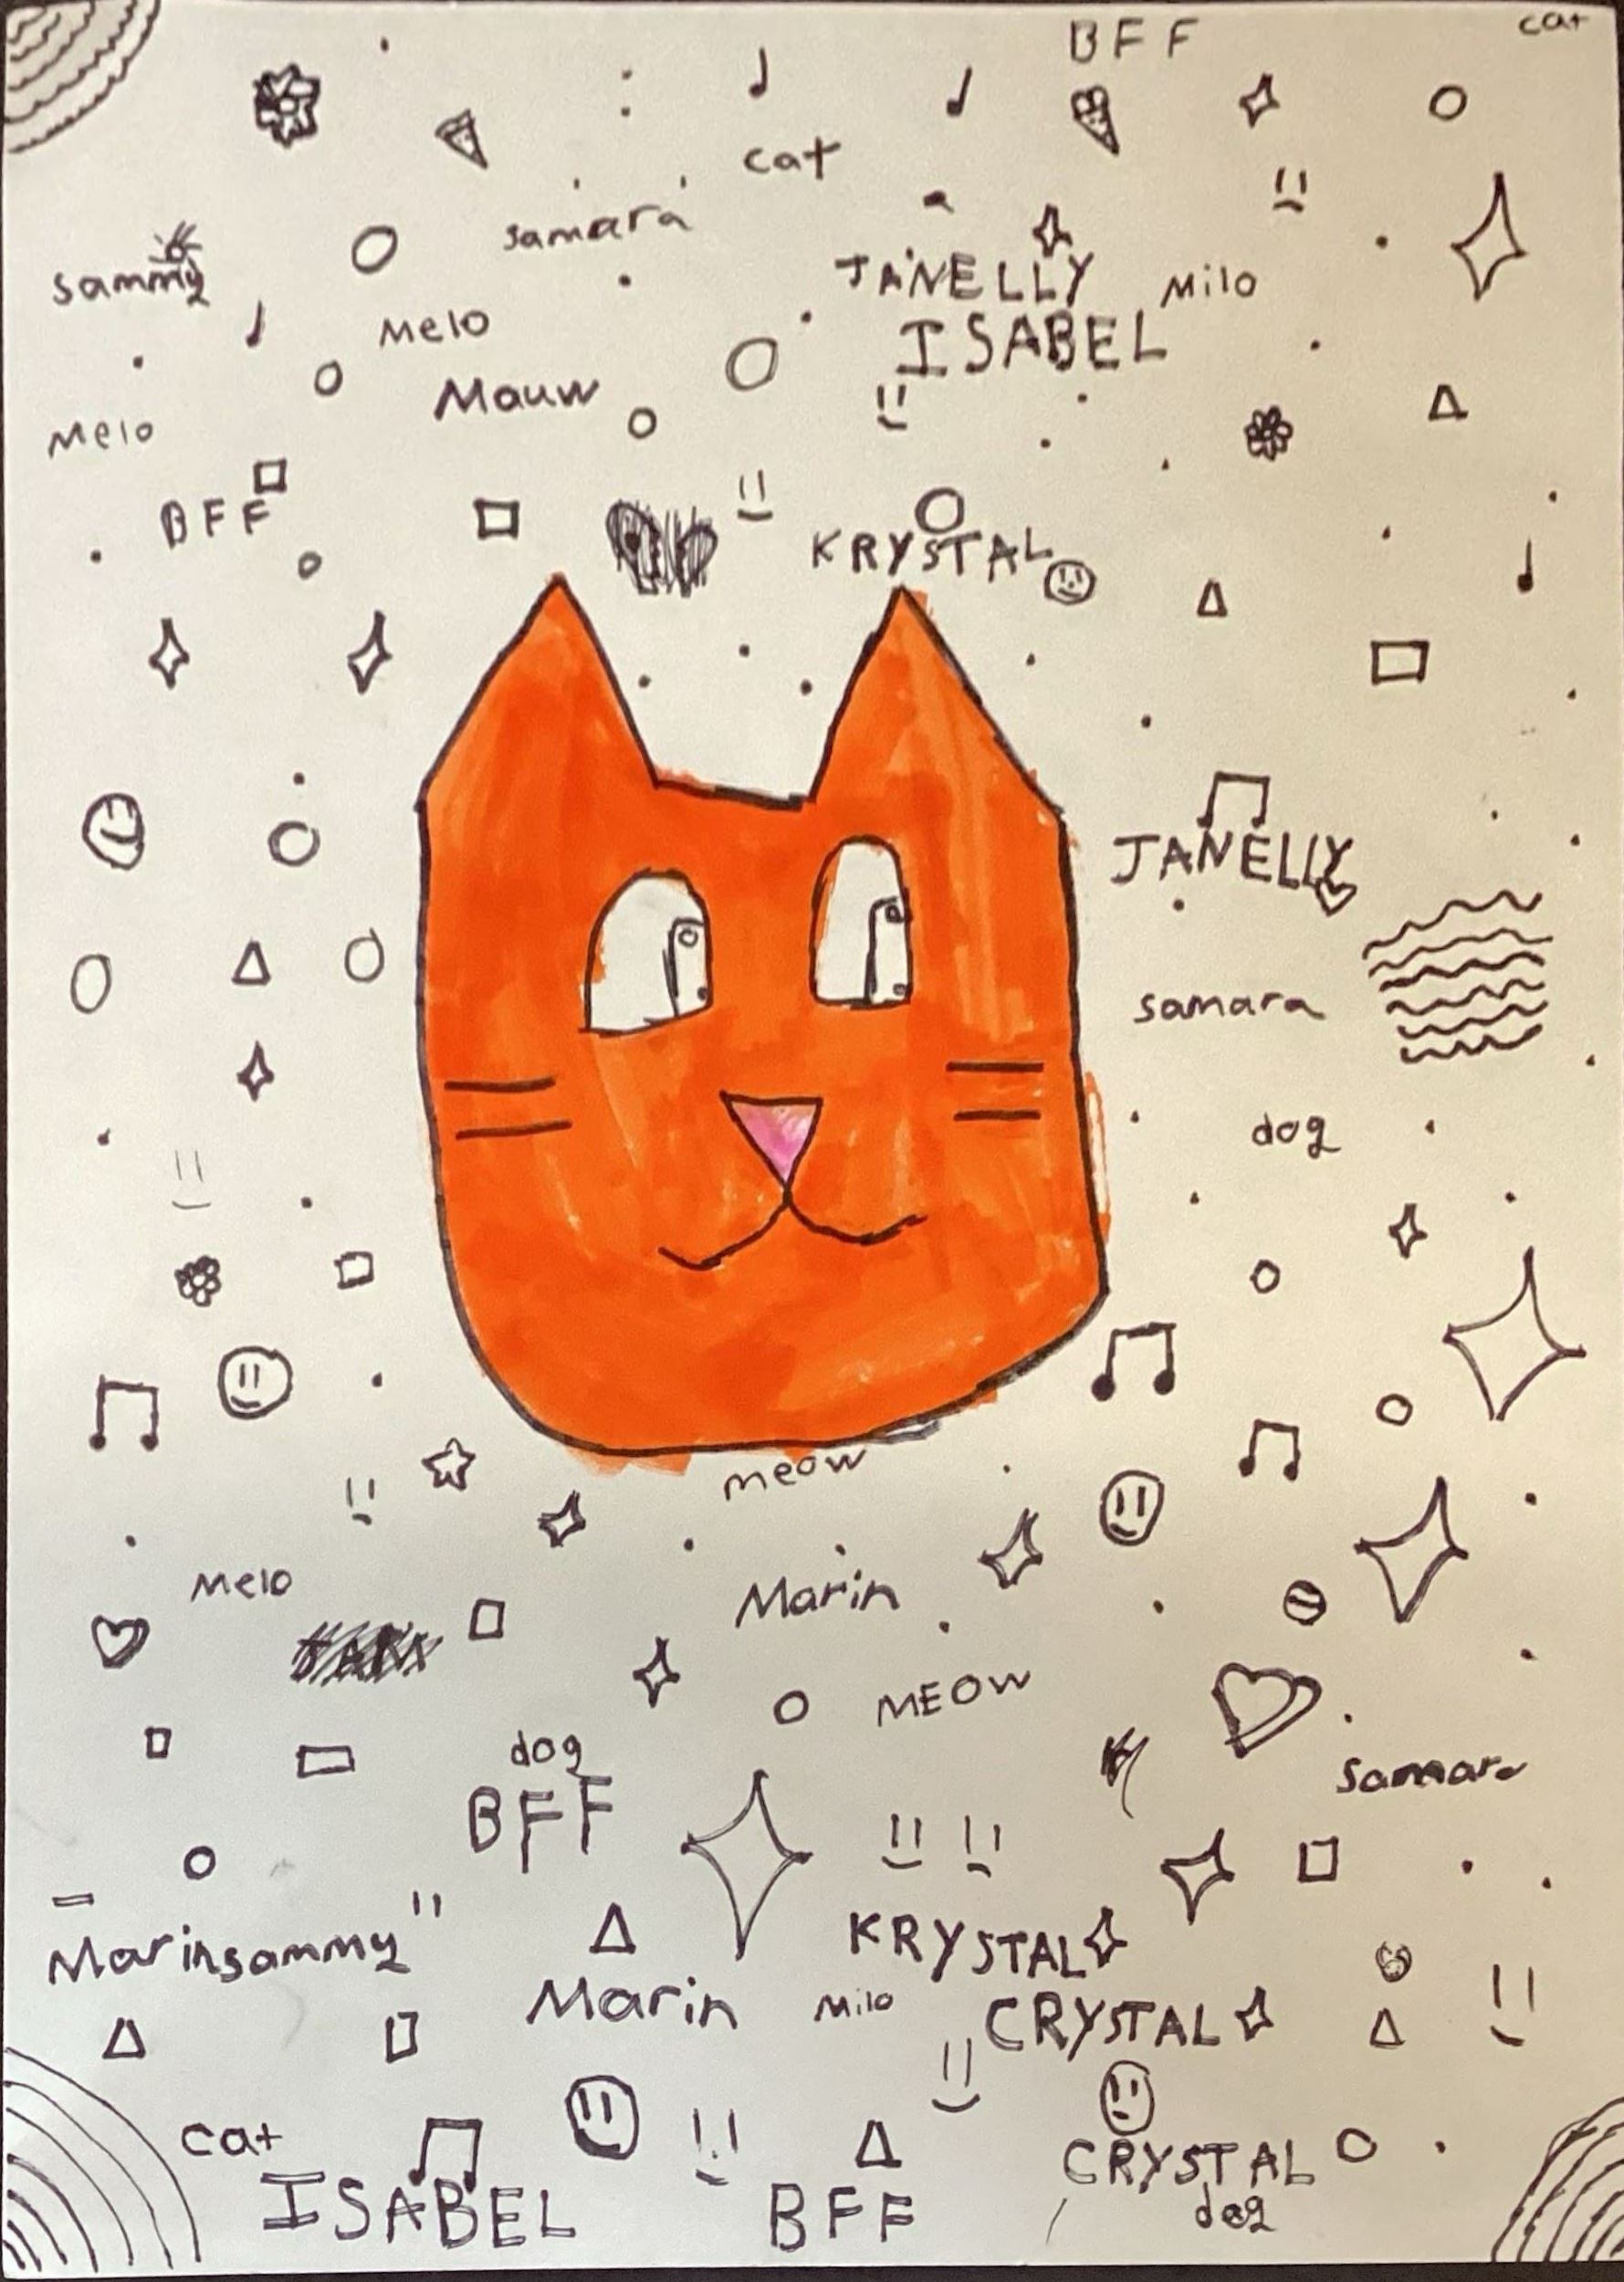 BFF
cat
cat
samara
sammy
JANELLY
Milo
Melo
ISABEL
Mauw
Melo
BFF
KRYSTAL
JANELLY
samara
dog
meow
Melo
Marin
MEOW
dog
BFF
samara
Marinsammy"
KRYSTAL
Marin
Milo
CRYSTAL
cat
CRYSTAL
ISABEL
BFF
dog